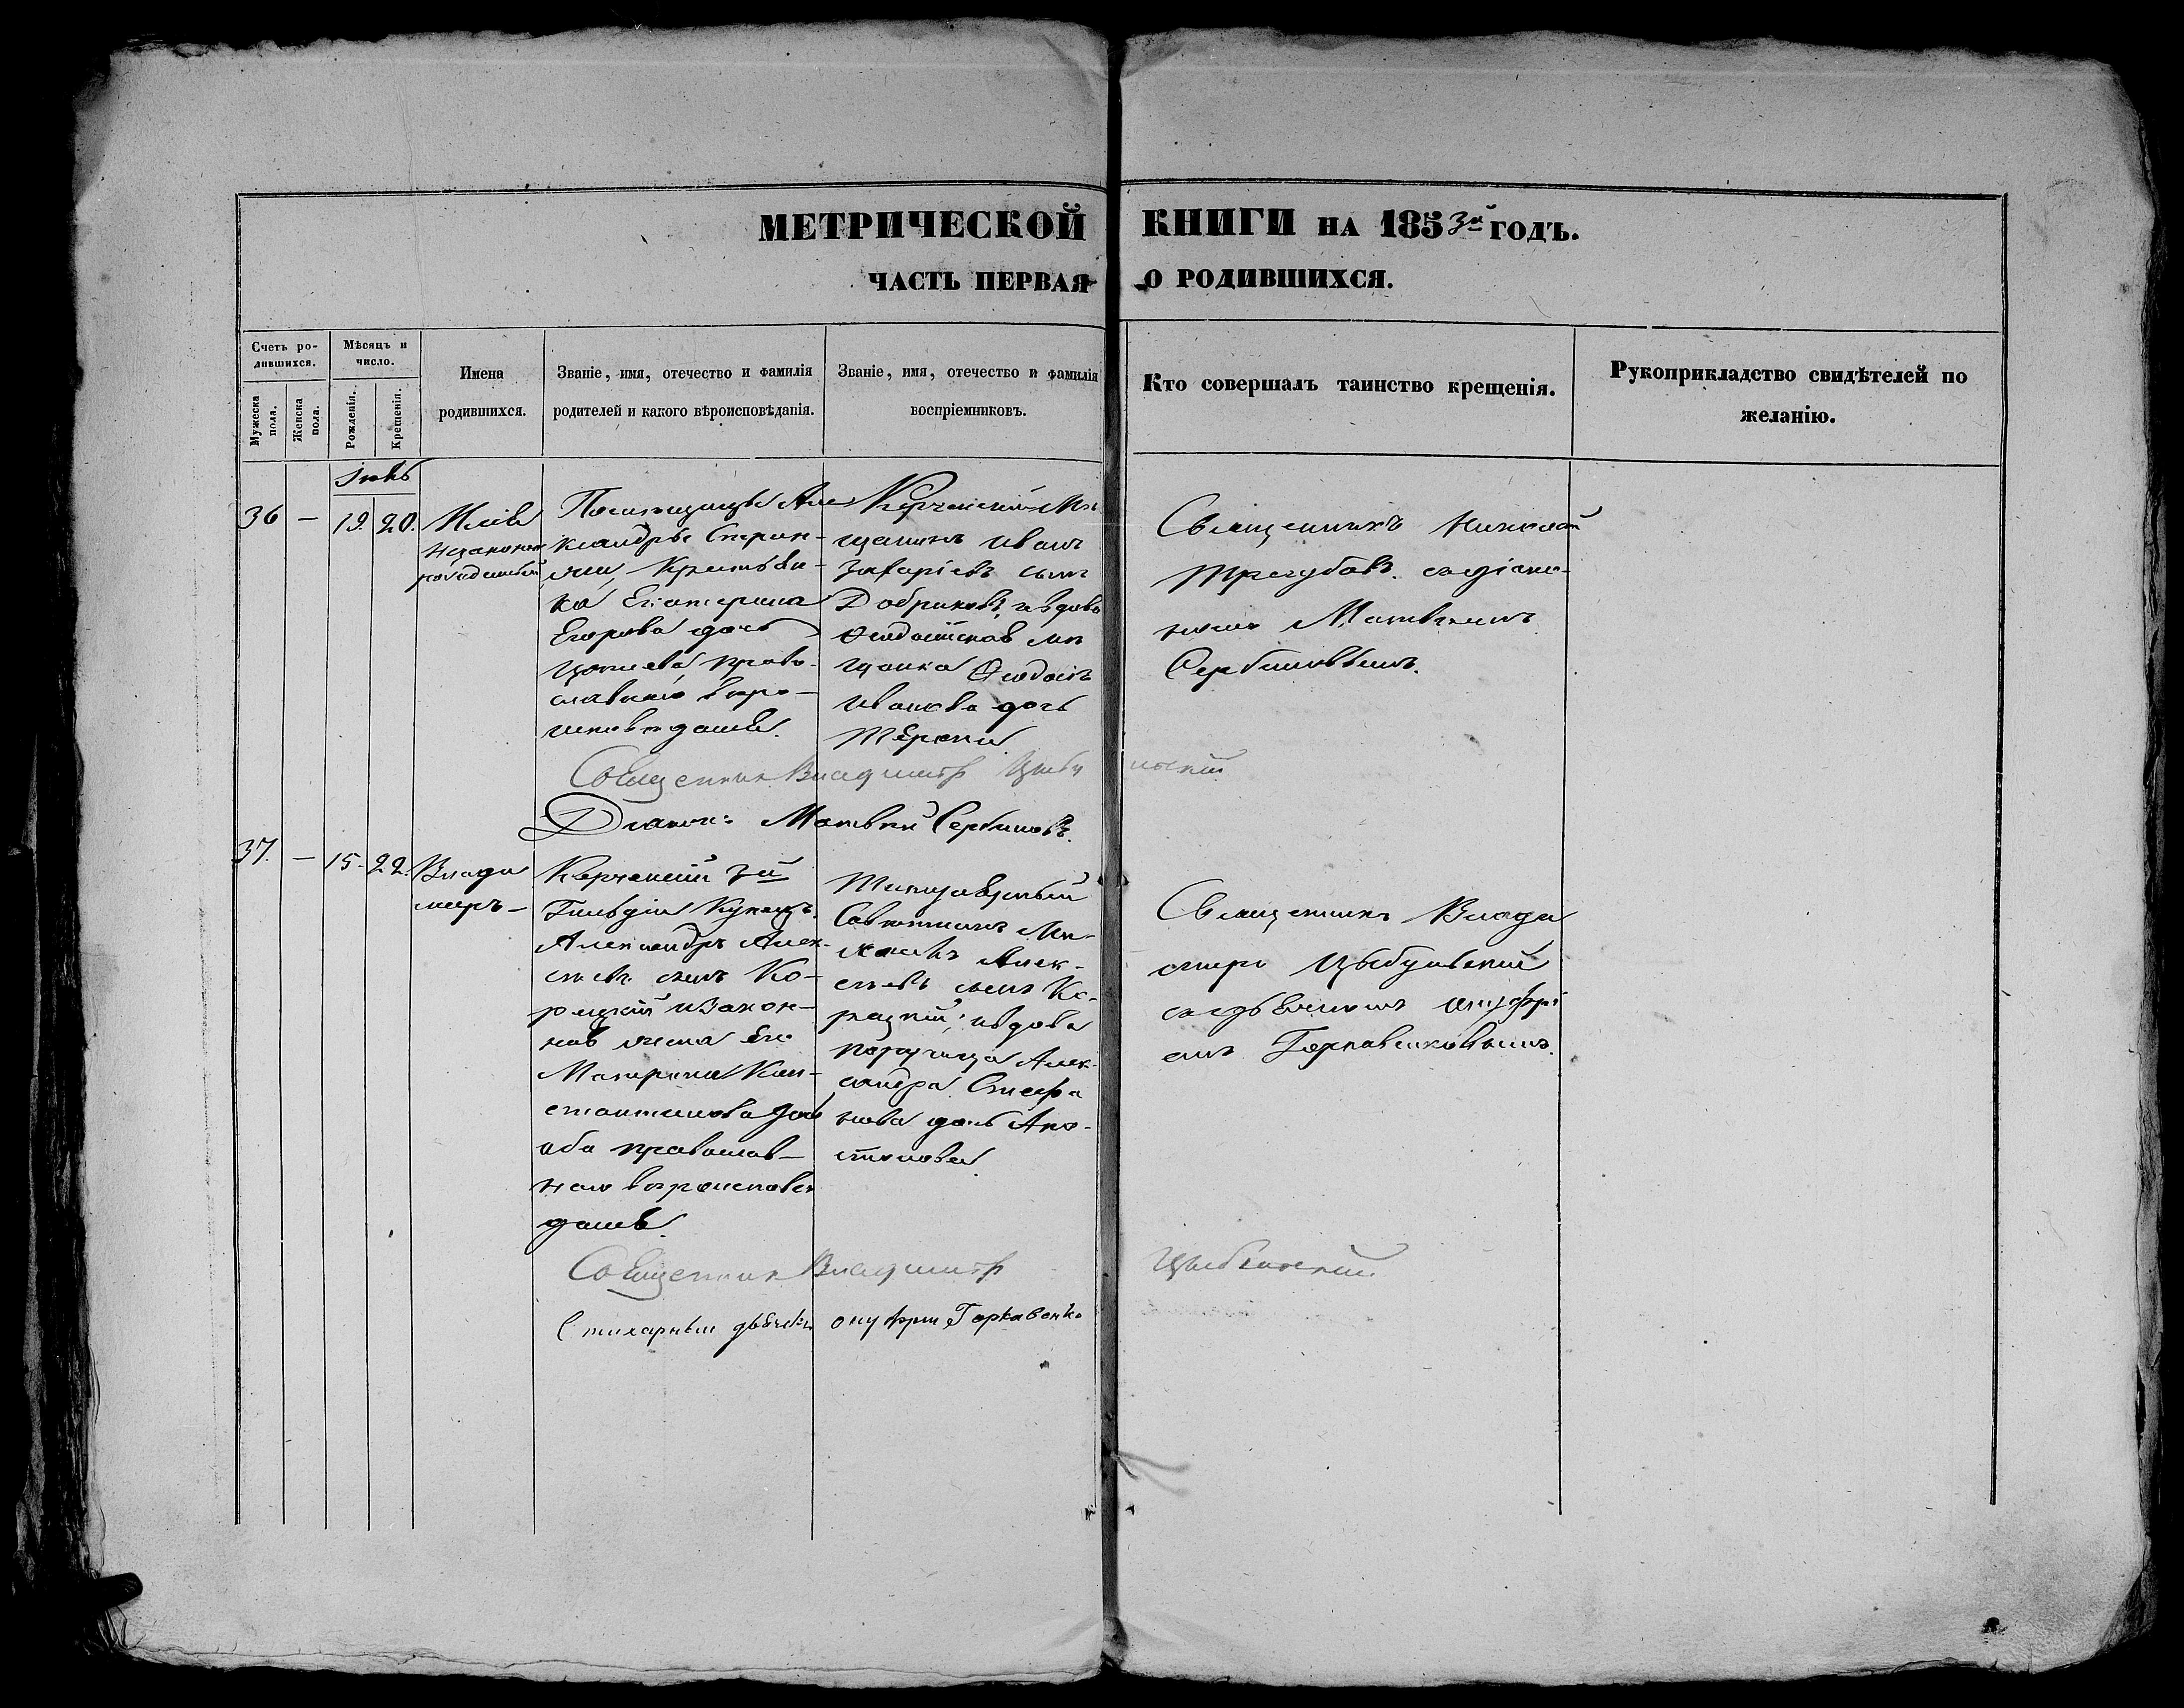 МЕТРИЧЕСКОЙ КНИГИ НА 1853й ГОДЪ.
ЧАСТЬ ПЕРВАЯ О РОДИВШИХСЯ.
Счетъ ро-
дившихся.
Мужеска
пола.
Женска
пола.
Мѣсяцъ и
число.
Рожденія.
Крещенія.
Имена
родившихся.
Званіе, имя, отечество и фамилія
родителей и какого вѣроисповѣданія.
Званіе, имя, отечество и фамилія
воспріемниковъ.
Кто совершалъ таинство крещенія.
Рукоприкладство свидѣтелей по
желанію.
36 — 19. 20.
Илія
незаконно
рожденный
Помѣщицы Але
ксандры
Крестьян-
ка Екатерина
Егорова дочь
право-
славнаго вѣро-
исповѣданія.
Керченскій Мѣ
щанинъ Иванъ
Захаріевъ сынъ
Добриковъ, и вдова
Ѳеодосійская мѣ
щанка Ѳеодосія
Иванова дочь
Священникъ Николай
Трегубовъ съ діако-
номъ Матвѣемъ
Сербиновымъ.
Священник Владимір Цыбульскій
Діакон: Матвей Сербиновъ.
37. — 15. 22.
Влади
миръ —
Керченскій 3й
Гильдіи Купецъ
Александръ Алек-
сѣевъ сынъ Ко-
рецкій и закон-
ная жена его
Матрона Кон-
стантинова дочь
оба православ-
наго вѣроисповѣ
данія.
Титулярный
Совѣтникъ Ми-
хаилъ Алек-
сѣевъ сынъ Ко-
рецкій, и вдова
порутчица Алек-
сандра Стефа
нова дочь Апо-
столова.
Священникъ Влади
миръ Цыбульскій
съ дьячкомъ Онуфрі
емъ Горкавенковымъ.
Священник Владимір Цыбульскій
Стихарный дьячекъ Онуфрій Горкавенко